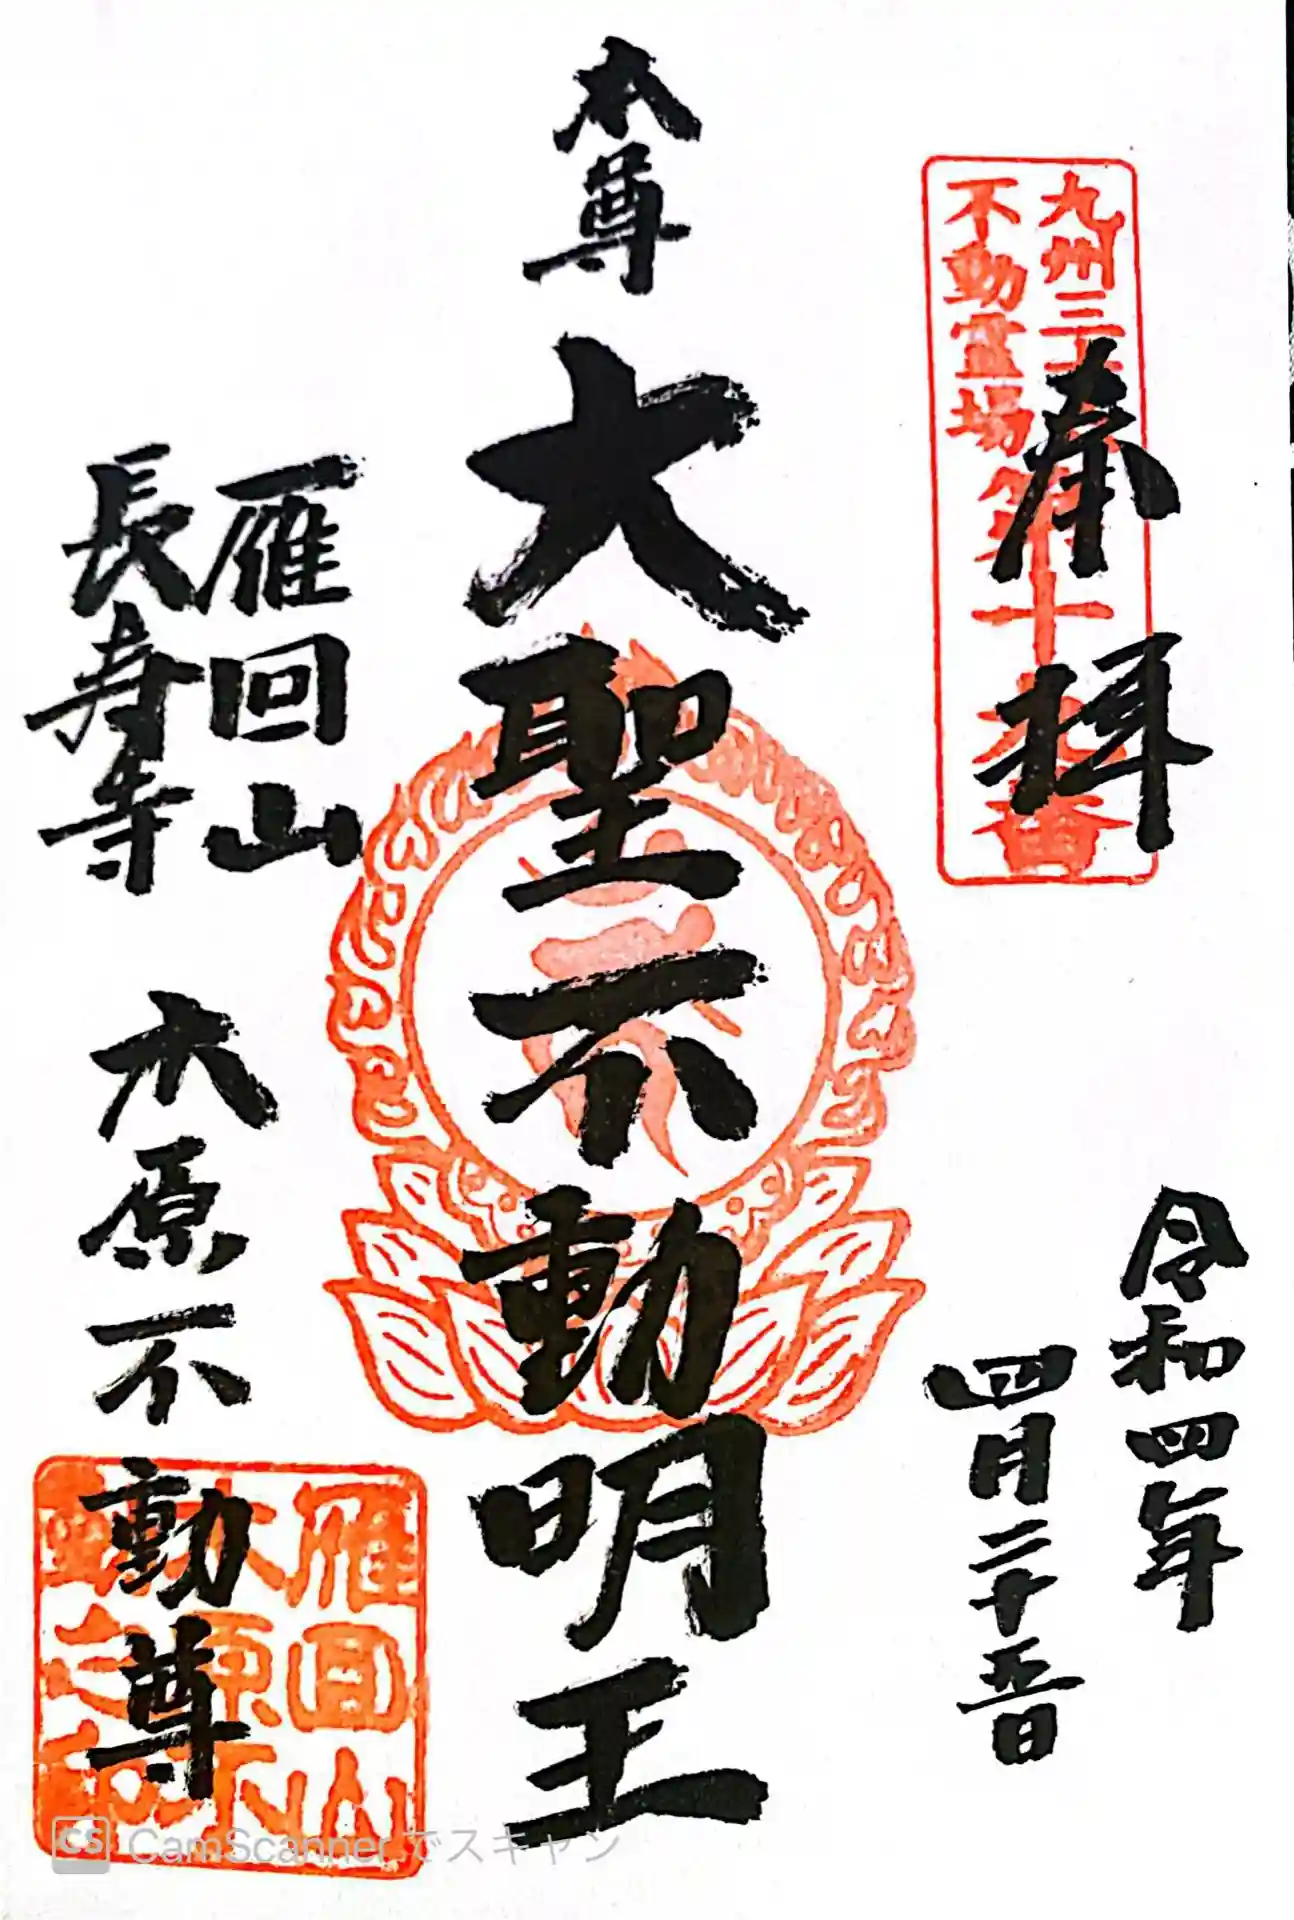 九州三十六
不動霊場
第十九番
奉拝
令和四年
四月二十五日
本尊 大聖不動明王
雁回山
長寿寺 木原不動尊
雁回山
木原不
動之印
CS CamScanner でスキャン